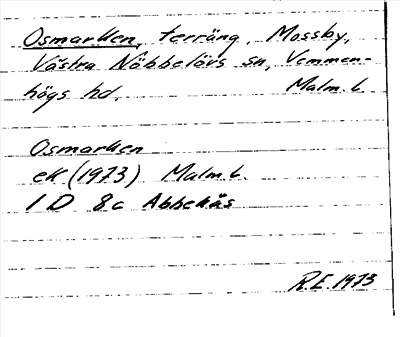 Osmarken, terräng, Mossby,
Västra Nöbbelövs sn, Vemmen-
högs hd. Malm. l.
Osmarken
ek (1973) Malm. l.
1 D 8c Abbekås
R.E. 1973